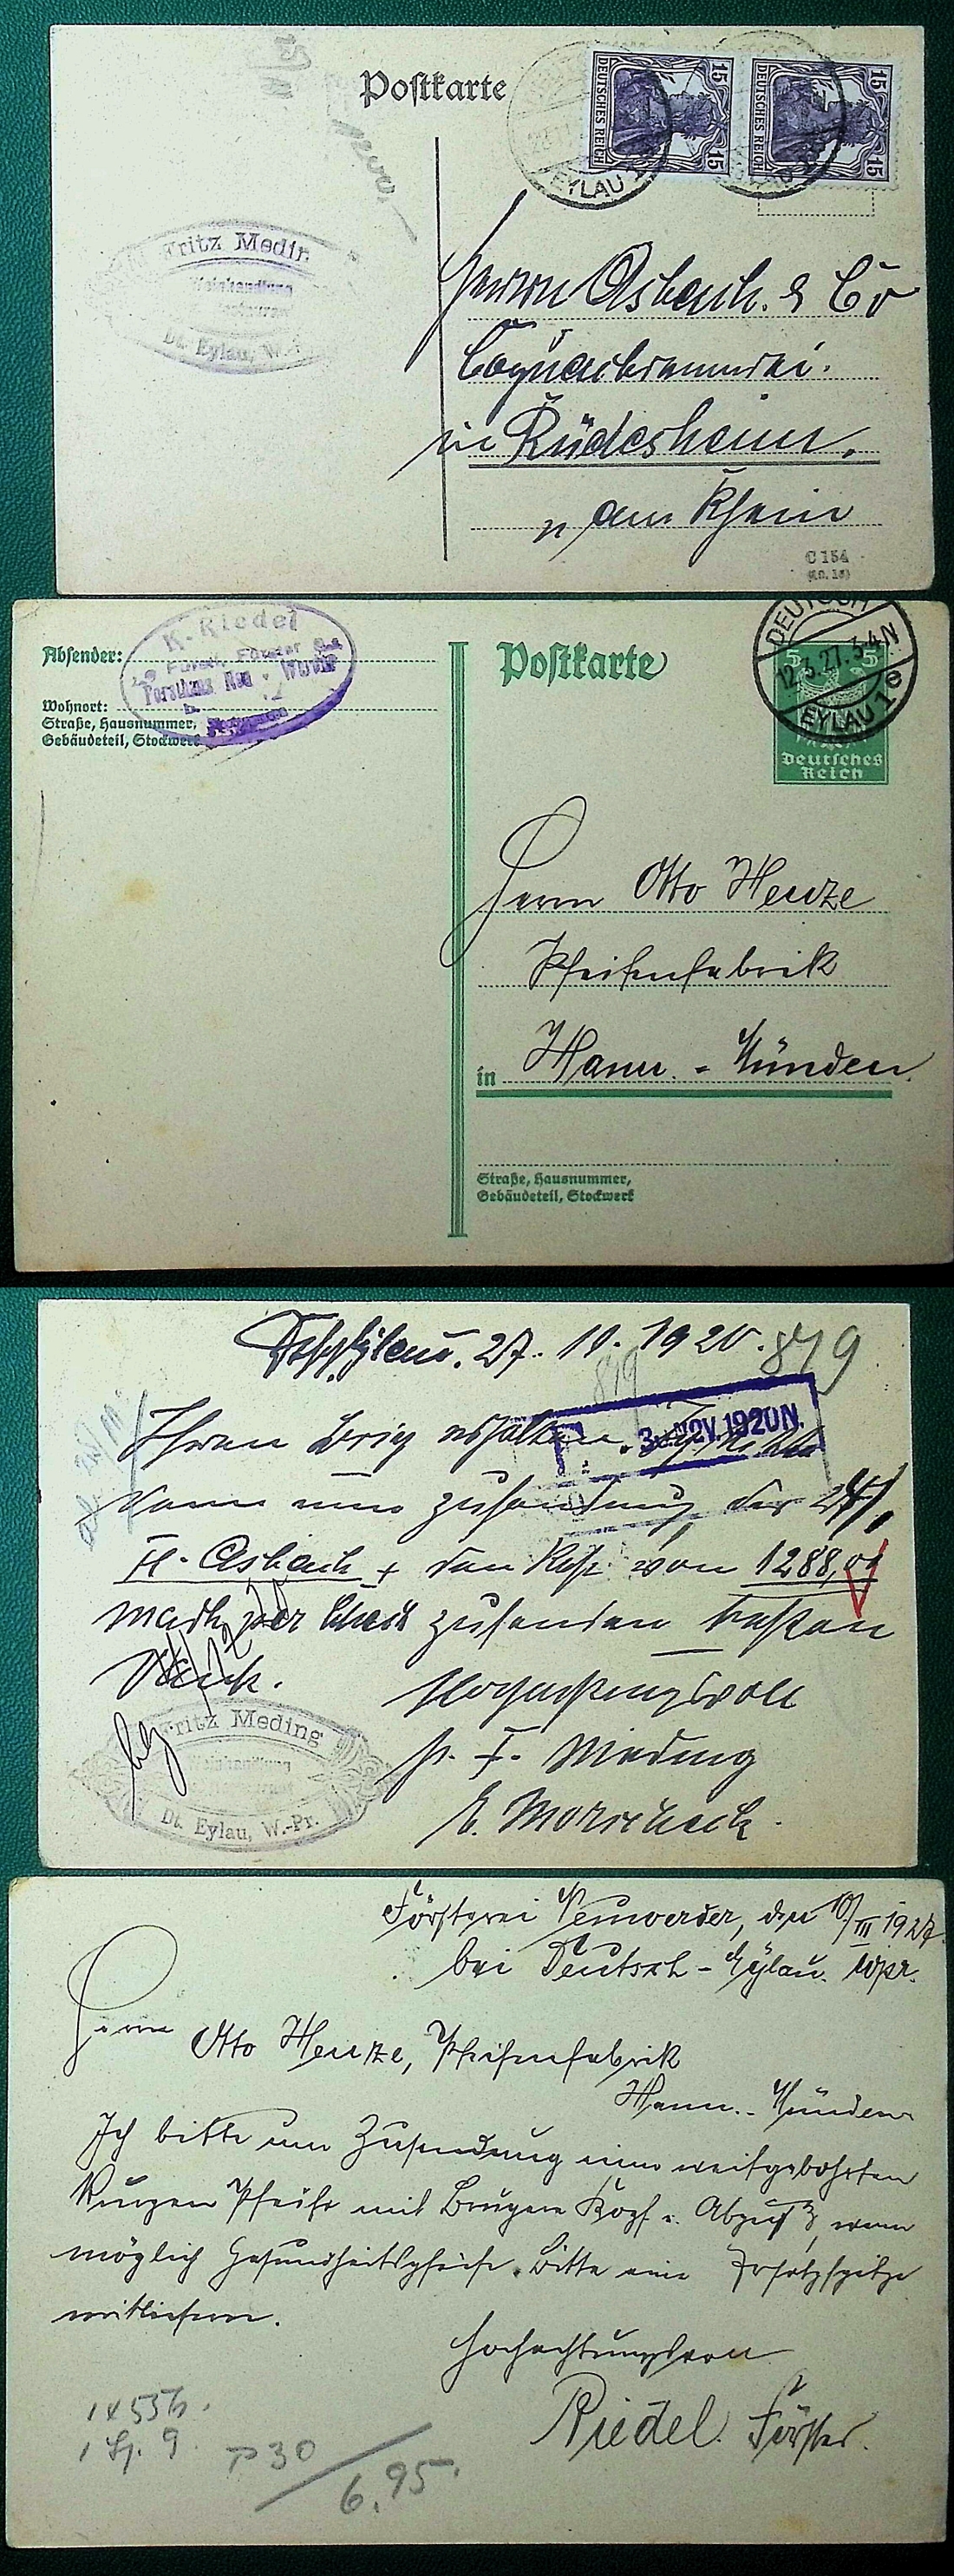 Postkarte
15 15
DEUTSCHES REICH
15 15
DEUTSCHES REICH
EYLAU
Fritz Medin
Weinhandlung
Dt. Eylau, W.-
Herrn Asbach & Co
Cognacbrennerei.
in Rüdesheim.
am Rhein
C 154
Absender:
Wohnort:
Straße, Hausnummer,
Gebäudeteil, Stockwerk
K. Riedel
Postkarte
DEUTSCH
12.3.27. 3-4N
EYLAU 1
5 5
Deutsches
Reich
Herrn Otto Henze
Pfeifenfabrik
in Hann. - Münden.
Straße, Hausnummer,
Gebäudeteil, Stockwerk
Dtsch Eylau. 27. 10. 1920.
819
Ihren Brief erhalten.
3. NOV. 1920 N.
zusendung der 24/1
Fl. Asbach + den Rest von 1288,01
Mark per Check zusenden besten
Dank.
Hochachtungsvoll
p. F. Meding
Fritz Meding
Weinhandlung
Dt. Eylau, W.-Pr.
Försterei Neuwerder, den 10/III 1927.
bei Deutsch-Eylau. Wpr.
Herrn
Otto Henze, Pfeifenfabrik
Hann.-Münden
Ich bitte um Zusendung einer weitgebohrten
kurzen Pfeife mit Bruyere Kopf u. Abguß, wenn
möglich Gesundheitspfeife. Bitte eine Ersatzspitze
mitliefern.
Hochachtungsvoll
Riedel. Förster.
P 30
6,95.